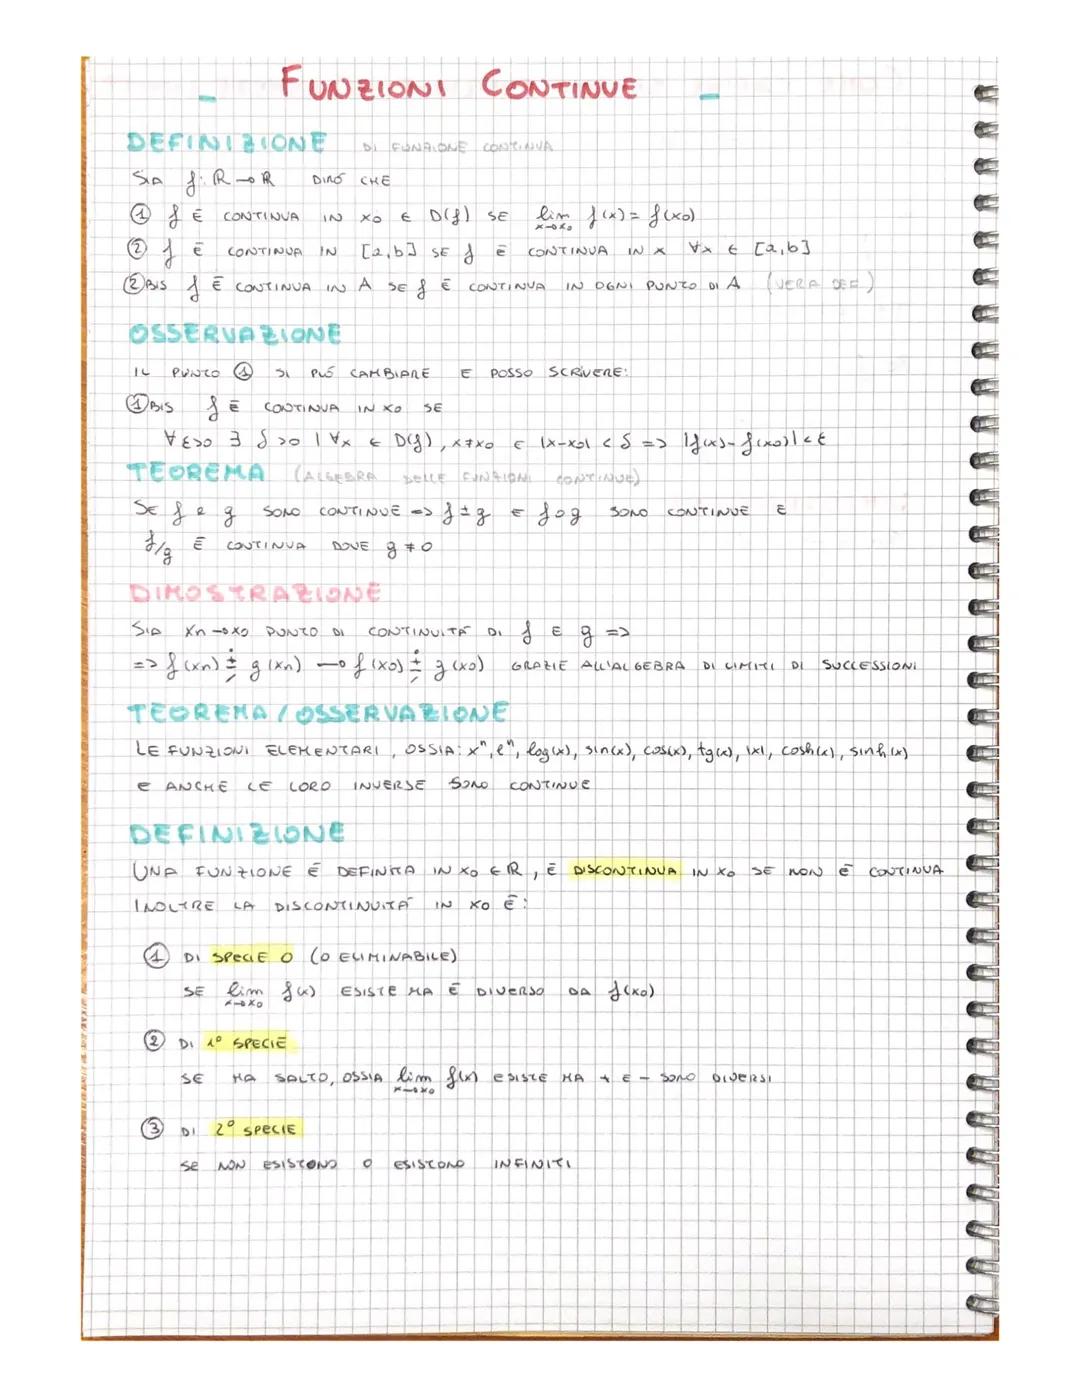 FUNZIONI CONTINUE
DEFINIZIONE DI FUNZIONE CONTINUA
SIA f: R → R DIRÒ CHE
① f È CONTINUA IN x0 ∈ D(f) SE lim x→x0 f(x) = f(x0)
② f È CONTINUA IN [a,b] SE f È CONTINUA IN x ∀x ∈ [a,b]
② BIS f È CONTINUA IN A SE f È CONTINUA IN OGNI PUNTO DI A (VERA DEF)
OSSERVAZIONE
IL PUNTO ① SI PUÒ CAMBIARE E POSSO SCRIVERE:
① BIS f È CONTINUA IN x0 SE
∀ε>0 ∃ δ>0 | ∀x ∈ D(f), x≠x0 E |x-x0| < δ => |f(x)-f(x0)| < ε
TEOREMA (ALGEBRA DELLE FUNZIONI CONTINUE)
SE f e g SONO CONTINUE => f±g E f∘g SONO CONTINUE E
f/g È CONTINUA DOVE g ≠ 0
DIMOSTRAZIONE
SIA xn → x0 PUNTO DI CONTINUITÀ DI f E g =>
=> f(xn) ∔ g(xn) → f(x0) ∔ g(x0) GRAZIE ALL'ALGEBRA DI LIMITI DI SUCCESSIONI
TEOREMA / OSSERVAZIONE
LE FUNZIONI ELEMENTARI, OSSIA: xⁿ, eⁿ, log(x), sin(x), cos(x), tg(x), |x|, cosh(x), sinh(x)
E ANCHE LE LORO INVERSE SONO CONTINUE
DEFINIZIONE
UNA FUNZIONE È DEFINITA IN x0 ∈ R, È DISCONTINUA IN x0 SE NON È CONTINUA
INOLTRE LA DISCONTINUITÀ IN x0 È:
① DI SPECIE 0 (O ELIMINABILE)
SE lim x→x0 f(x) ESISTE MA È DIVERSO DA f(x0)
② DI 1° SPECIE
SE HA SALTO, OSSIA lim x→x0 f(x) ESISTE MA + E - SONO DIVERSI
③ DI 2° SPECIE
SE NON ESISTONO O ESISTONO INFINITI